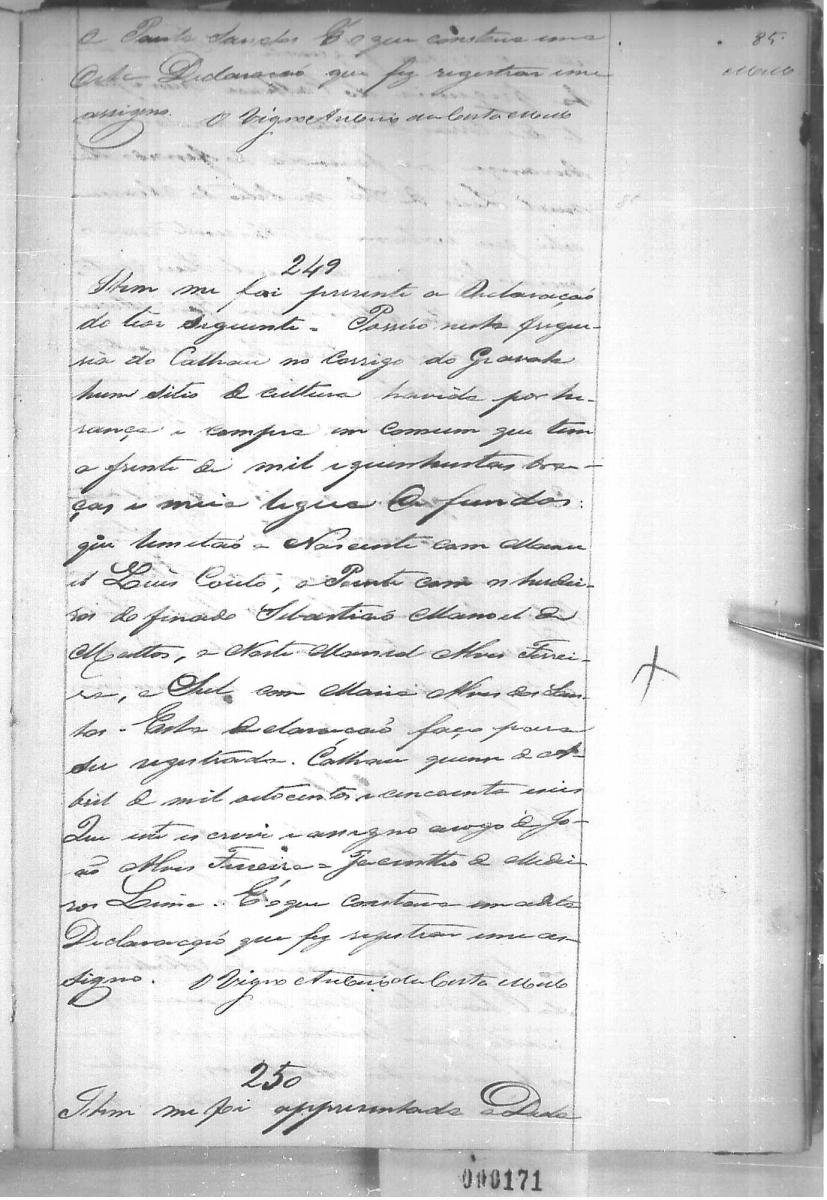 e Paula Santos. E é que constava uma
esta Declaração que fiz registrar e me
assigno. O Vigro Antonio da Costa Mello
85
Mello
249
Item me foi presente a Declaração
do teor seguinte = Possúo nesta fregue-
sia do Calhau no Corrigo do Gravata
hum sitio de cultura havida por he-
rança e compra em comum que tem
a frente de mil e quinhentas bra-
ças e meia legua de fundos:
que lemitão a Nascente com Mano-
el Luis Couto, a Poente com os herdei-
ros do finado Sebastião Manoel de
Mattos, a Norte Manoel Alves Ferrei-
ra, e Sul com Maria Alves dos San-
tos - Esta declaração faço para
ser registrada. Calhau quinze de A-
bril de mil oitocentos e cincoenta seis
Que este escrevi e assigno a rogo de Jo-
ão Alves Ferreira = Jacintho de Medei-
ros Lima. E é que constava em a dita
Declaração que fiz registrar e me as-
signo. O Vigro Antonio da Costa Mello
250
Item me foi appresentada a Decla
000171